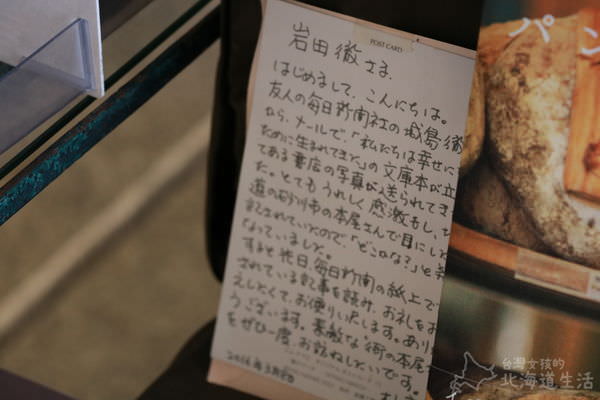 POST CARD
岩田徹さま、
はじめまして、こんにちは。
友人の毎日新聞社の城島徹
から、メールで、「私たちは幸せに
ために生まれてきた」の文庫本が立
てある書店の写真が送られてき
た。とてもうれしく感激もし、
道の砂川市の本屋さんで目にした
記されていたので、「どこかな?」と
なっていました。
すると先日毎日新聞の紙上で
されている記事を読み、お礼をお
えしたくて、お便りいたします。あり
うございます。素敵な街の本屋
をぜひ一度、お訪ねしたいです。
パン
台灣女孩的
北海道生活